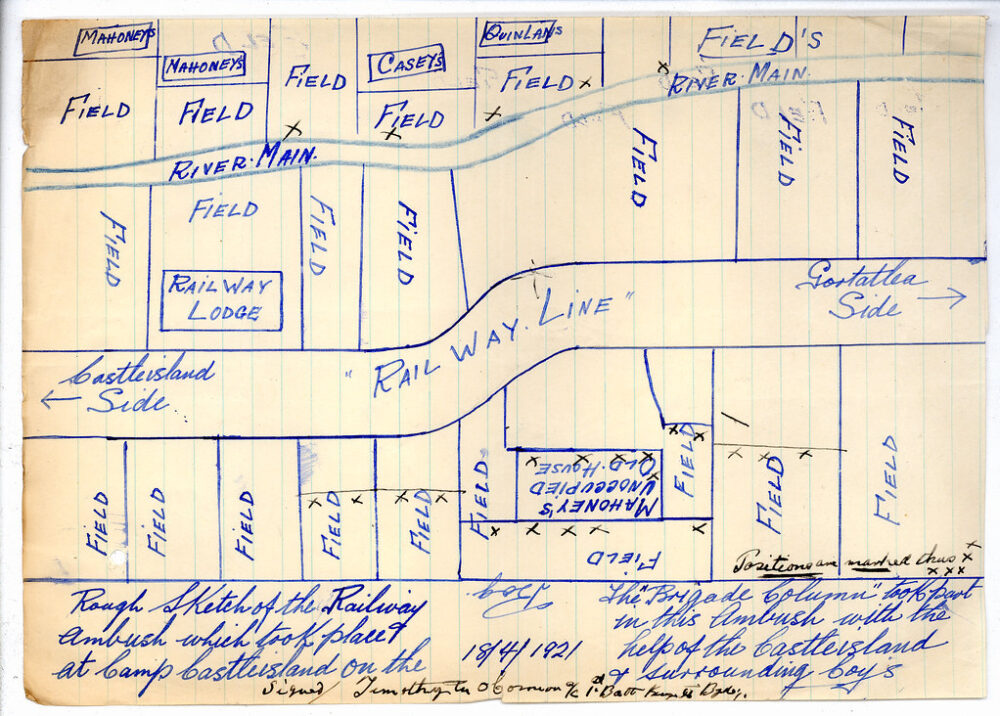 MAHONEYS
QUINLAN'S
FIELD'S
MAHONEYS
CASEYS
FIELD
FIELD
RIVER MAIN
FIELD
FIELD
FIELD
RIVER MAIN.
FIELD
FIELD
FIELD
FIELD
FIELD
FIELD
FIELD
FIELD
RAILWAY
LODGE
Gortatlea
Side →
"RAILWAY. LINE"
Castleisland
← Side
MAHONEY'S
UNOCCUPIED
OLD. HOUSE
FIELD
FIELD
FIELD
FIELD
FIELD
FIELD
FIELD
FIELD
FIELD
FIELD
Positions are marked thus x
x x x
Rough Sketch of the Railway
Ambush which took place
at Camp Castleisland on the
18/4/1921
The "Brigade Column" took part
in this Ambush with the
help of the Castleisland
& surrounding Coy's
Signed Timothy O'Connor O/C 1st Batt